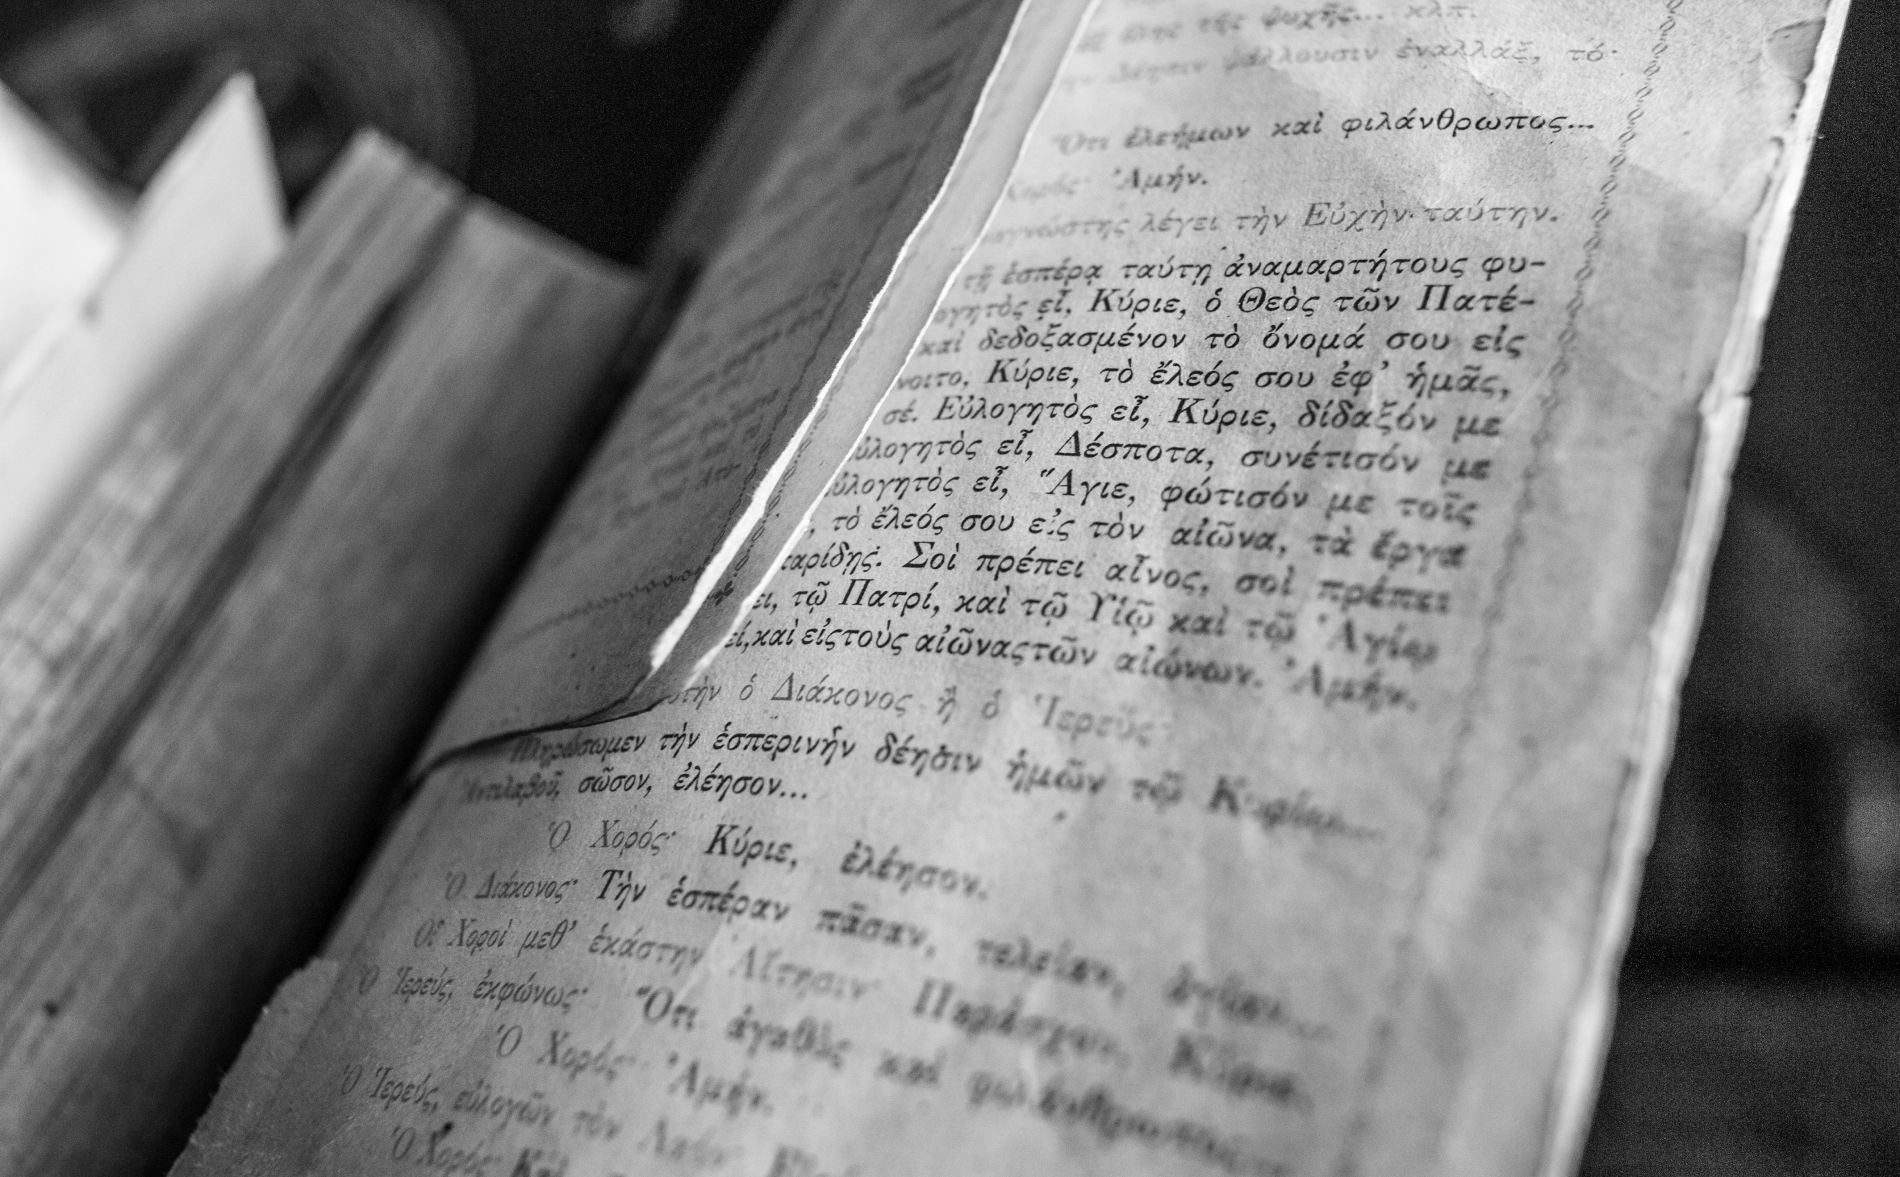 τῆς ψυχῆς... κλπ.
ψάλλουσιν ἐναλλάξ, τό·
Ὅτι ἐλεήμων καὶ φιλάνθρωπος...
Χορός· Ἀμήν.
λέγει τὴν Εὐχὴν· ταύτην.
τῇ ἑσπέρᾳ ταύτῃ ἀναμαρτήτους φυ-
ογητὸς εἶ, Κύριε, ὁ Θεὸς τῶν Πατέ-
καὶ δεδοξασμένον τὸ ὄνομά σου εἰς
νοιτο, Κύριε, τὸ ἔλεός σου ἐφ' ἡμᾶς,
σέ. Εὐλογητὸς εἶ, Κύριε, δίδαξόν με
ὐλογητὸς εἶ, Δέσποτα, συνέτισόν με
ὐλογητὸς εἶ, Ἅγιε, φώτισόν με τοῖς
, τὸ ἔλεός σου εἰς τὸν αἰῶνα, τὰ ἔργα
παρίδῃς. Σοὶ πρέπει αἶνος, σοὶ πρέπει
ει, τῷ Πατρί, καὶ τῷ Υἱῷ καὶ τῷ Ἁγίῳ
εί, καὶ εἰς τοὺς αἰῶνας τῶν αἰώνων. Ἀμήν.
τὴν ὁ Διάκονος ἢ ὁ Ἱερεύς·
Πληρώσωμεν τὴν ἑσπερινὴν δέησιν ἡμῶν τῷ Κυρίῳ...
Ἀντιλαβοῦ, σῶσον, ἐλέησον...
Ὁ Χορός· Κύριε, ἐλέησον.
Ὁ Διάκονος· Τὴν ἑσπέραν πᾶσαν, τελείαν, ἁγίαν...
Οἱ Χοροὶ μεθ' ἑκάστην Αἴτησιν· Παράσχου, Κύριε.
Ὁ Ἱερεύς, ἐκφώνως· Ὅτι ἀγαθὸς καὶ φιλάνθρωπος
Ὁ Χορός· Ἀμήν.
Ὁ Ἱερεύς, εὐλογῶν τὸν Λαόν·
Ὁ Χορός· Καὶ